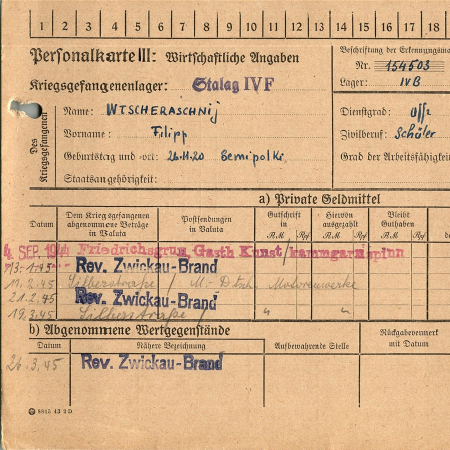 1 2 3 4 5 6 7 8 9 10 11 12 13 14 15 16 17 18
Personalkarte III: Wirtschaftliche Angaben
Beschriftung der Erkennungsma
Nr. 154503
Kriegsgefangenenlager: Stalag IVF
Lager: IVB
Des Kriegsgefangenen
Name: WTSCHERASCHNIJ
Vorname: Filipp
Geburtstag und -ort: 26.11.20 Semipolki
Staatsangehörigkeit:
Dienstgrad: Off
Zivilberuf: Schüler
Grad der Arbeitsfähigkeit
a) Private Geldmittel
Datum
Dem Kriegsgefangenen abgenommene Beträge in Valuta
Postsendungen in Valuta
Gutschrift in
R.M. Rpf
Hiervon ausgezahlt
R.M. Rpf
Bleibt Guthaben
R.M. Rpf
be
4. SEP. 1944 Friedrichsgrun, Gasth Kunst/kammgarnspinn
Rev. Zwickau-Brand
11.2.45 Silberstraße / M.- Dtsch. Motorenwerke
21.2.45 Rev. Zwickau-Brand
19.3.45 Silberstraße / " "
b) Abgenommene Wertgegenstände
Datum
Nähere Bezeichnung
Aufbewahrende Stelle
Rückgabevermerk mit Datum
26.3.45 Rev. Zwickau-Brand
8815 43 2 D